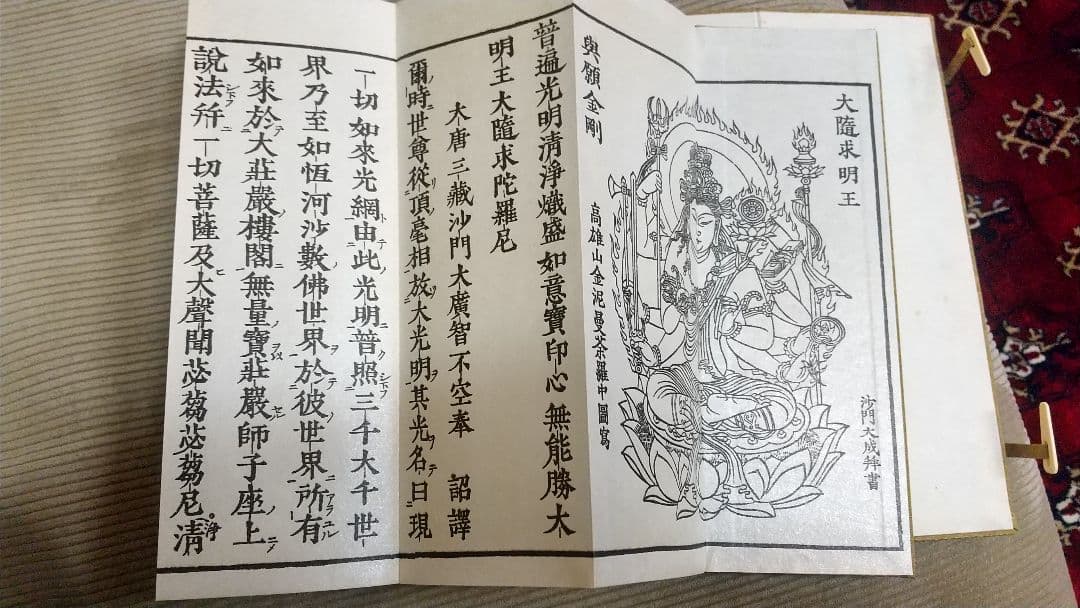 大隨求明王
沙門大成拜書
高雄山金泥曼荼羅中圖寫
與願金剛
普遍光明清淨熾盛如意寶印心無能勝大
明王大隨求陀羅尼
大唐三藏沙門大廣智不空奉 詔譯
爾時世尊從頂毫相放大光明其光名曰現
一切如來光網由此光明普照三千大千世
界乃至如恆河沙數佛世界於彼世界所有
如來於大莊嚴樓閣無量寶莊嚴師子座上
說法幷一切菩薩及大聲聞苾蒭苾蒭尼清淨